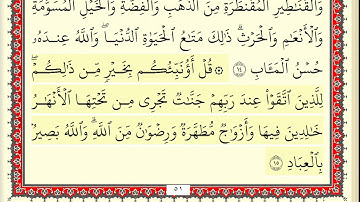 وَٱلْقَنَٰطِيرِ ٱلْمُقَنطَرَةِ مِنَ ٱلذَّهَبِ وَٱلْفِضَّةِ وَٱلْخَيْلِ ٱلْمُسَوَّمَةِ
وَٱلْأَنْعَٰمِ وَٱلْحَرْثِ ۗ ذَٰلِكَ مَتَٰعُ ٱلْحَيَوٰةِ ٱلدُّنْيَا ۖ وَٱللَّهُ عِندَهُۥ
حُسْنُ ٱلْمَـَٔابِ ١٤ ۞ قُلْ أَؤُنَبِّئُكُم بِخَيْرٍ مِّن ذَٰلِكُمْ ۚ
لِلَّذِينَ ٱتَّقَوْا۟ عِندَ رَبِّهِمْ جَنَّٰتٌ تَجْرِى مِن تَحْتِهَا ٱلْأَنْهَٰرُ
خَٰلِدِينَ فِيهَا وَأَزْوَٰجٌ مُّطَهَّرَةٌ وَرِضْوَٰنٌ مِّنَ ٱللَّهِ ۗ وَٱللَّهُ بَصِيرٌۢ
بِٱلْعِبَادِ ١٥
٥١